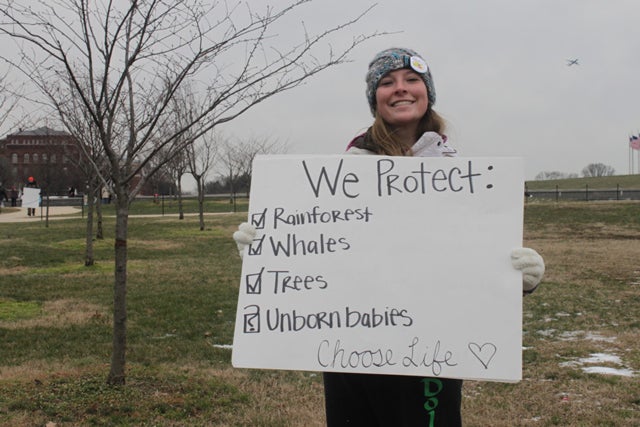 We Protect:
☑ Rainforest
☑ Whales
☑ Trees
? Unborn babies
Choose Life ♡